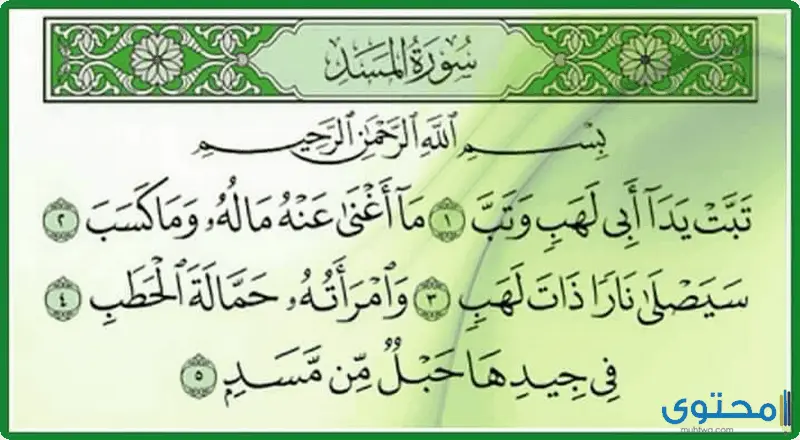 سُورَةُ المَسَدِ
بِسْمِ ٱللَّهِ ٱلرَّحْمَٰنِ ٱلرَّحِيمِ
تَبَّتْ يَدَآ أَبِى لَهَبٍ وَتَبَّ ١ مَآ أَغْنَىٰ عَنْهُ مَالُهُۥ وَمَا كَسَبَ ٢
سَيَصْلَىٰ نَارًا ذَاتَ لَهَبٍ ٣ وَٱمْرَأَتُهُۥ حَمَّالَةَ ٱلْحَطَبِ ٤
فِى جِيدِهَا حَبْلٌ مِّن مَّسَدٍ ٥
محتوى
muhtwa.com